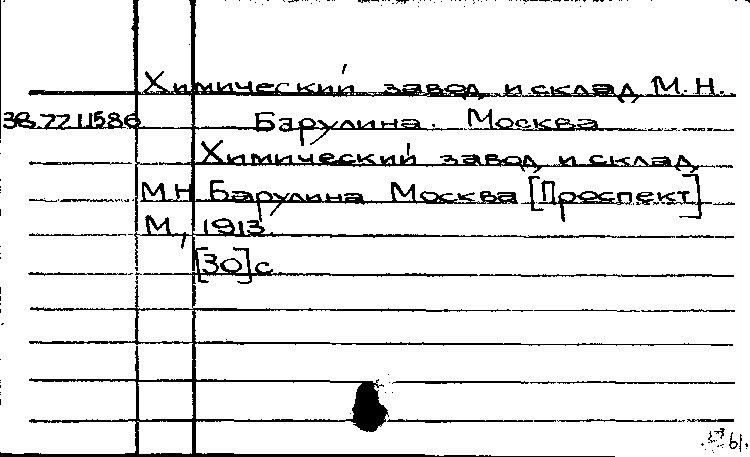 Химический завод и склад М.Н.
38.22 11586 Барулина. Москва
Химический завод и склад
М.Н Барулина Москва [Проспект]
М., 1913.
[30] с